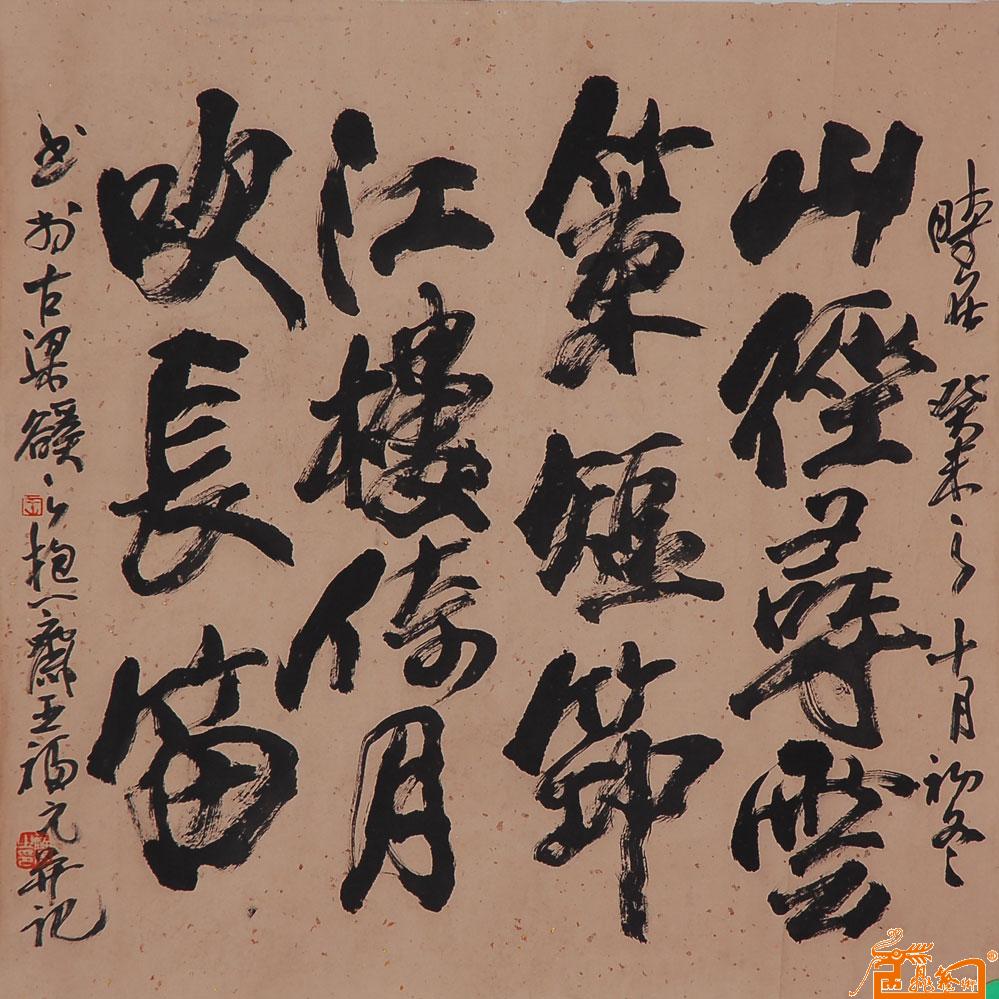 時在癸未之十月初冬
山徑尋雲
策短節
江樓倚月
吹長笛
書於古梁
之抱一齋王福元并記